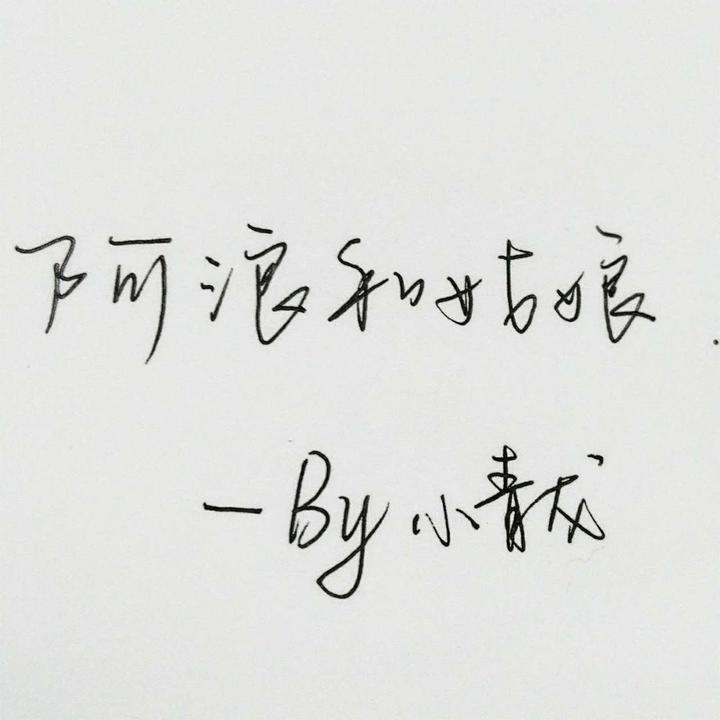 阿浪和姑娘.
—By 小青龙